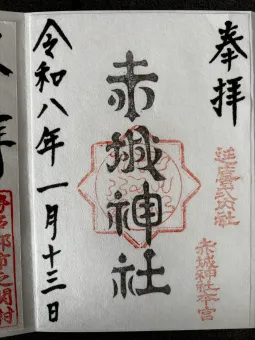 奉拝
延喜式内社
赤城神社本宮
赤城神社
令和八年一月十三日